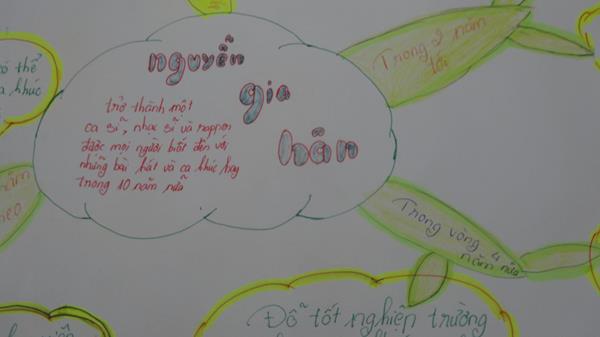 nguyễn
gia
hân
trở thành một
ca sĩ, nhạc sĩ và rapper
được mọi người biết đến với
những bài hát và ca khúc hay
trong 10 năm nữa
Trong 2 năm
tới
Trong vòng 4
năm nữa
có thể
khúc
năm
Đỗ tốt nghiệp trường